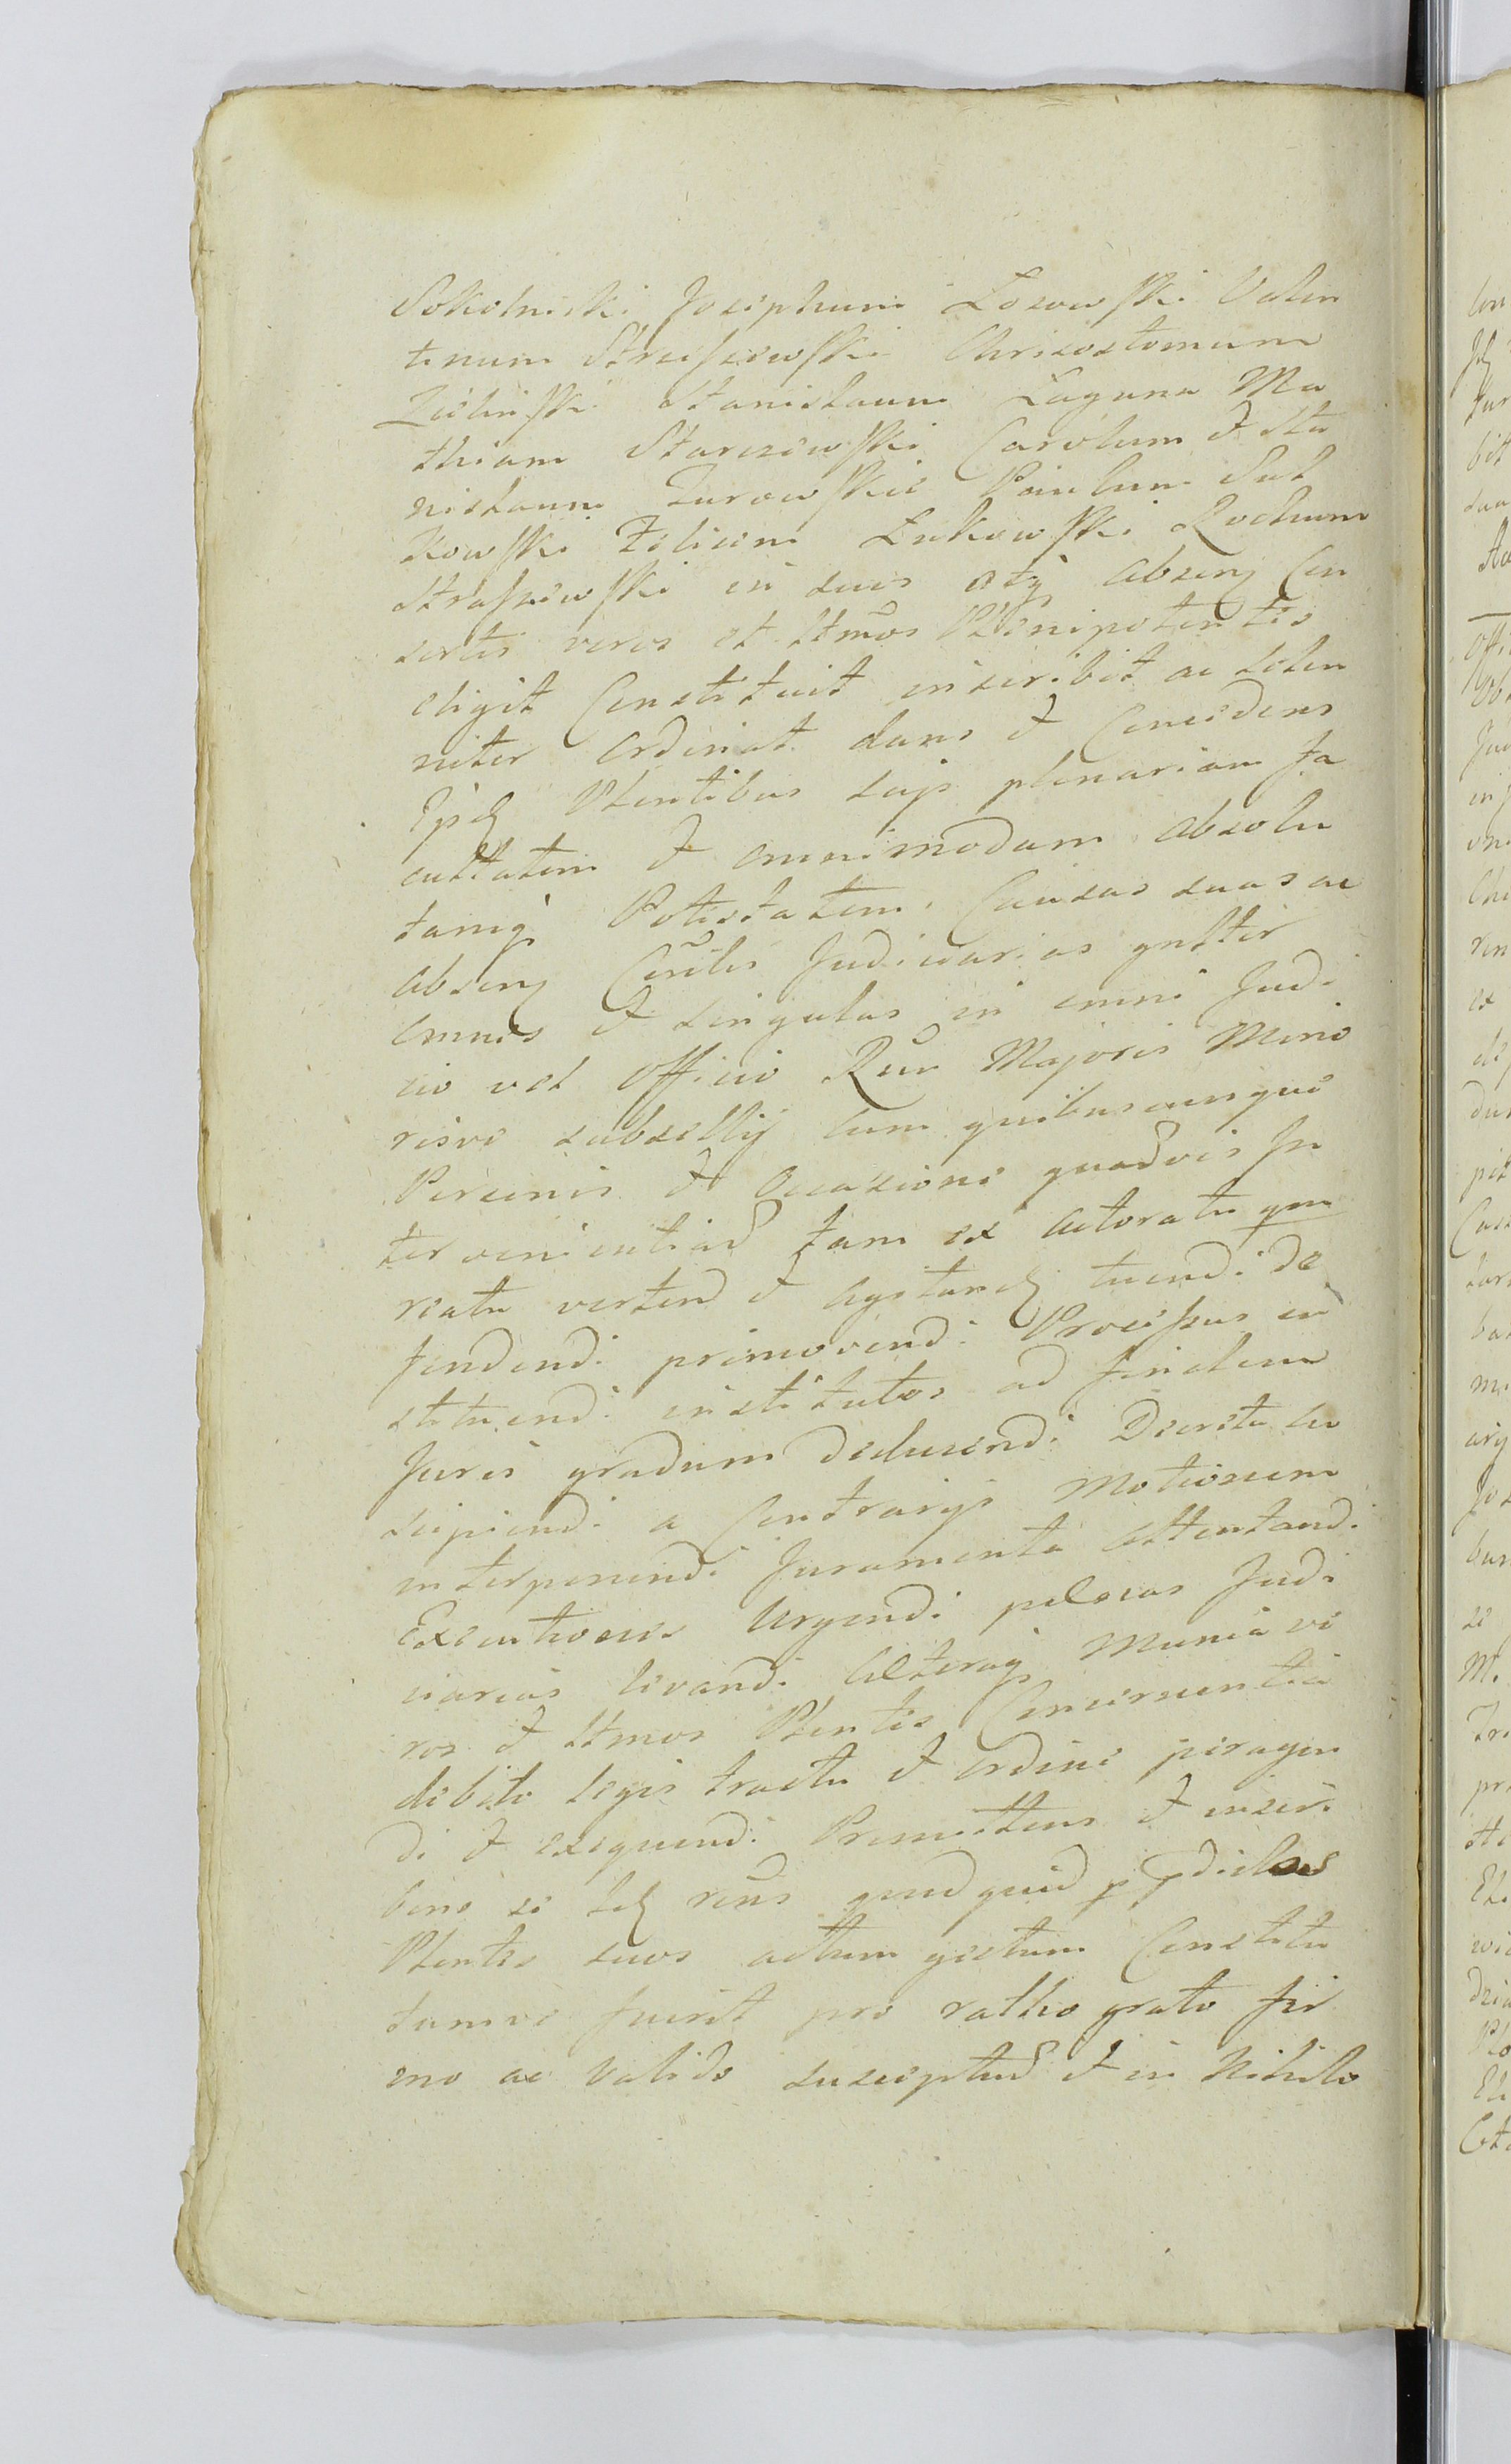 Sokolnicki Josephum Łosowski Valen
tinum Strzeszewski Chrisostomum
Zieliński Stanislaum Łaguna Ma
thiam Starczewski Carolum et Sta
nislaum Zurowskie Paulum Sul
kowski Felicem Łukowski Rochum
Straszewski in suis atq absenq Con
sortis veros et Ltmos Plenipotentes
eligit Constituit inscribit ac solen
niter Ordinat dans et Concedens
Ijsdq Plentibus suis plenariam Fa
cultatem et omnimodam absolu
tamq Potestatem, Causas suas ac
absenq Consortis Judiciarias gnltir
omnes et singulas in omni Judi
cio vel Officio Rni Majoris Mino
risve subsellij cum quibuscunque
Personis et Occasione quadvis In
tervenientiad tam ex actoratu qm
reatu vertend et Agitandq tuendi de
fendendi promovendi Processus in
stituendi institutos ad finalem
Juris gradum deducendi Decreta su
scipiendi a Contrarijs Motionem
interponendi Juramenta attentandi
Executiones Urgendi palvas Judi
ciarias levandi Alteraq Munia ve
ros et Ltmos Plentes Concernentia
debito legis tractu et ordine peragen
di et exequendi Promittens et inscri
bens se sdq rens quidquid p pdictos
Plentes suos actum gestum Constitu
tumve fuerit pro ratho grato fir
mo ac valido suscepturd et in Nihilo